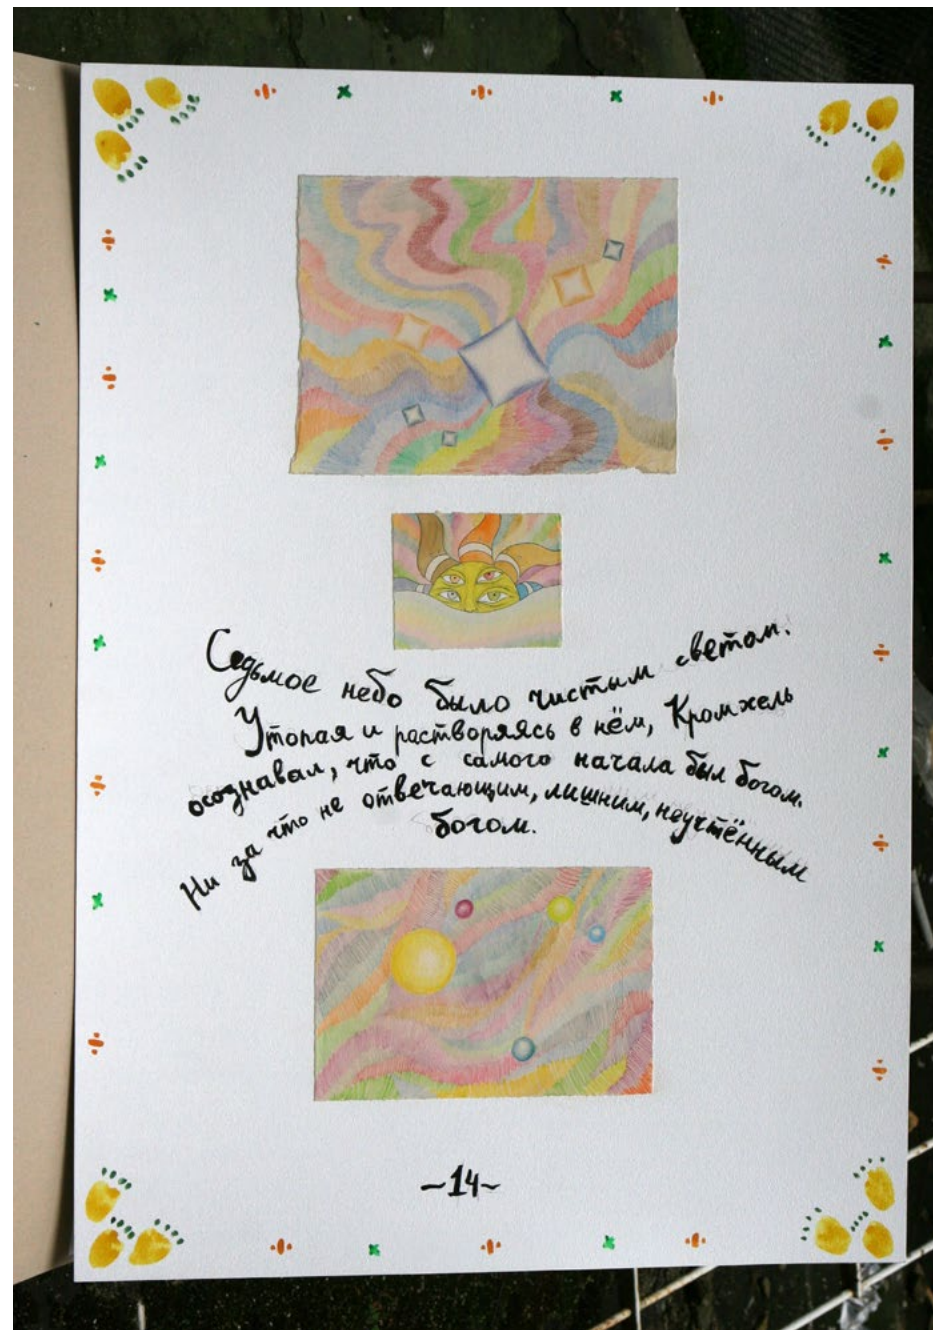 Седьмое небо было чистым светом.
Утопая и растворяясь в нём, Кромхель
осознавал, что с самого начала был богом.
Ни за что не отвечающим, лишним, неучтённым
богом.
~14~